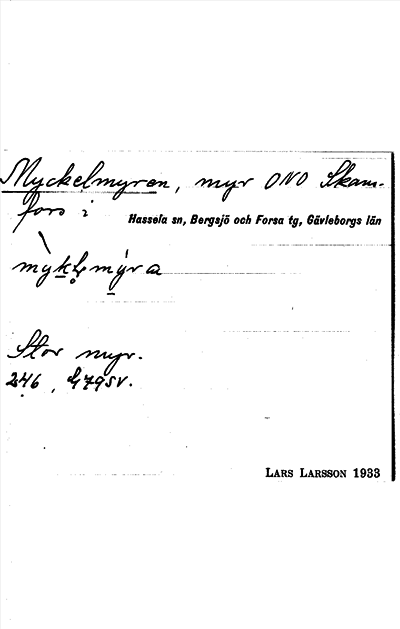 Myckelmyren, myr ONO Skam-
fors i Hassela sn, Bergsjö och Forsa tg, Gävleborgs län
Stor myr.
246,
LARS LARSSON 1933